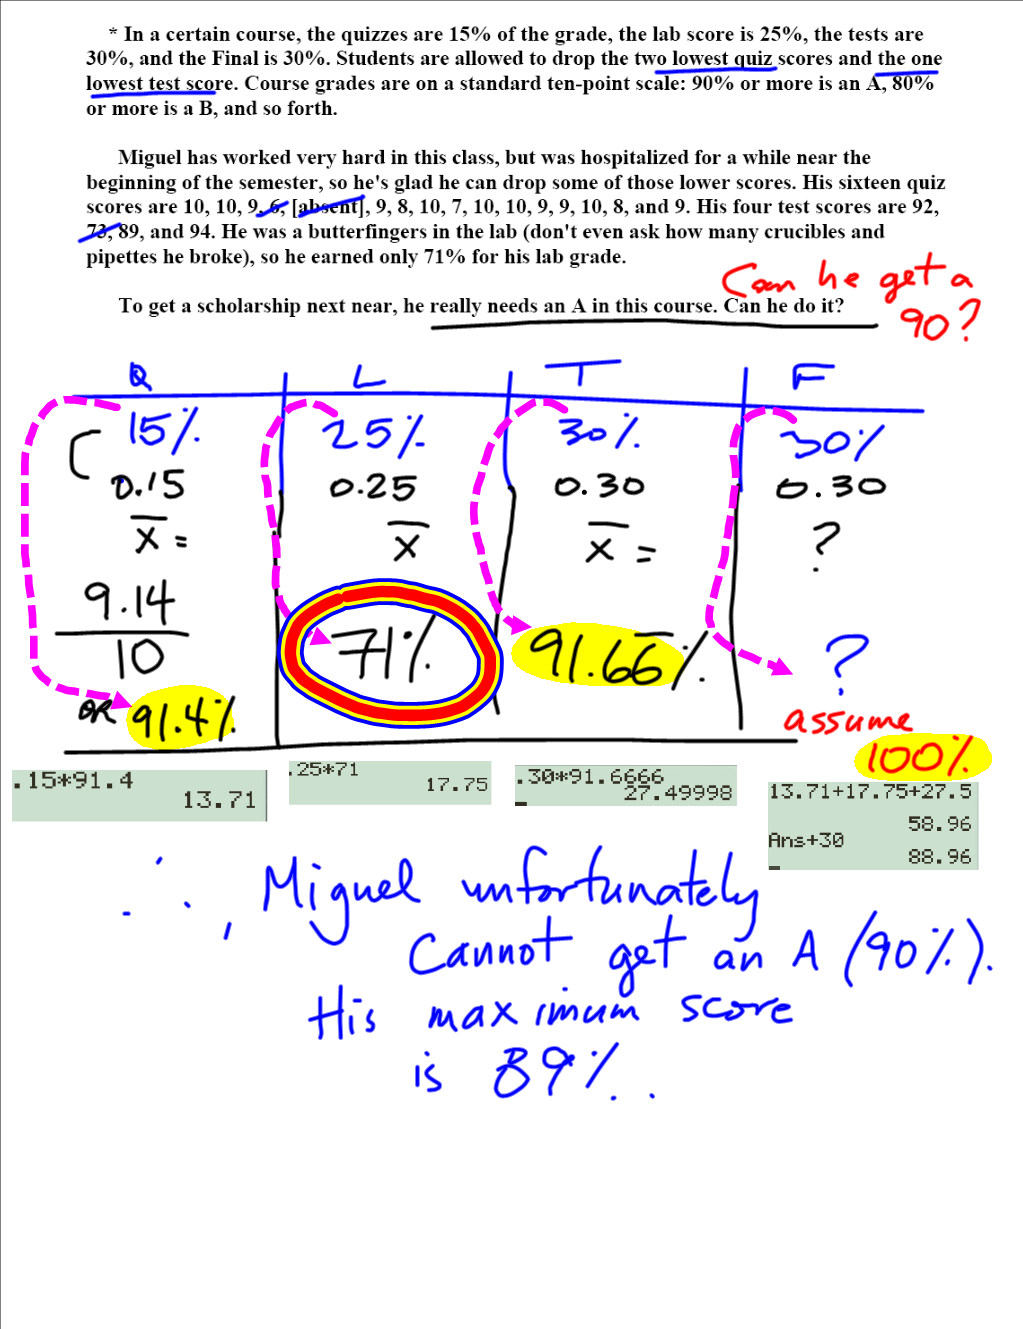 * In a certain course, the quizzes are 15% of the grade, the lab score is 25%, the tests are
30%, and the Final is 30%. Students are allowed to drop the two lowest quiz scores and the one
lowest test score. Course grades are on a standard ten-point scale: 90% or more is an A, 80%
or more is a B, and so forth.
Miguel has worked very hard in this class, but was hospitalized for a while near the
beginning of the semester, so he's glad he can drop some of those lower scores. His sixteen quiz
scores are 10, 10, 9, 6, [absent], 9, 8, 10, 7, 10, 10, 9, 9, 10, 8, and 9. His four test scores are 92,
73, 89, and 94. He was a butterfingers in the lab (don't even ask how many crucibles and
pipettes he broke), so he earned only 71% for his lab grade.
To get a scholarship next near, he really needs an A in this course. Can he do it?
Can he get a
90?
Q L T F
15% 25% 30% 30%
0.15 0.25 0.30 0.30
x̄ = x̄ x̄ = ?
9.14
10
71% 91.66̅% ?
OR 91.4%
assume
100%
.15*91.4
13.71
.25*71
17.75
.30*91.6666
27.49998
13.71+17.75+27.5
58.96
Ans+30
88.96
∴, Miguel unfortunately
Cannot get an A (90%).
His maximum score
is 89%.